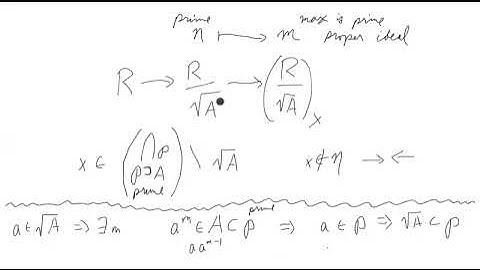 prime max is prime
η ↦ m proper ideal
R → R/√A → (R/√A)ₓ
x ∈ (⋂ p p⊃A prime) \ √A x ∉ η →←
a ∈ √A ⇒ ∃m aᵐ ∈ A ⊂ p prime ⇒ a ∈ p ⇒ √A ⊂ p
a aᵐ⁻¹